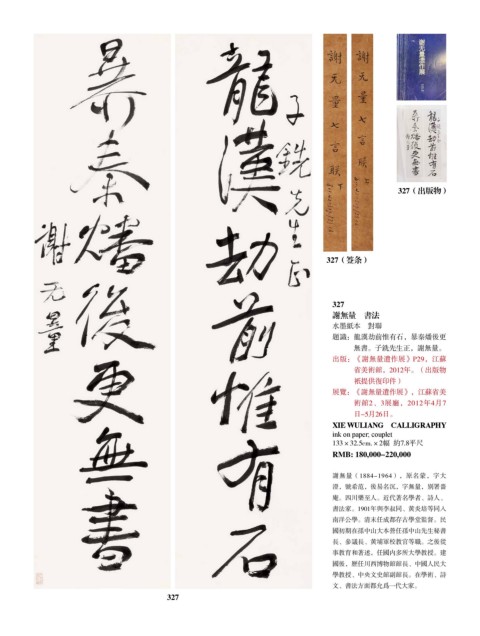 龍漢劫前惟有石
子銑先生正
暴秦燔後更無書
謝无量
謝无量七言聯 上
謝无量七言聯 下
謝无量遺作展
龍漢劫前惟有石
暴秦燔後更無書
327（出版物）
327（签条）
327
謝無量 書法
水墨紙本 對聯
題識：龍漢劫前惟有石，暴秦燔後更
無書。子銑先生正，謝無量。
出版：《謝無量遺作展》P29，江蘇
省美術館，2012年。（出版物
衹提供復印件）
展覽：《謝無量遺作展》，江蘇省美
術館2、3展廳，2012年4月7
日-5月26日。
XIE WULIANG CALLIGRAPHY
ink on paper; couplet
133×32.5cm.×2幅 約7.8平尺
RMB: 180,000–220,000
謝無量（1884-1964），原名蒙，字大
澄，號希范，後易名沉，字無量，別署嗇
庵。四川樂至人。近代著名學者、詩人、
書法家。1901年與李叔同、黃炎培等同入
南洋公學。清末任成都存古學堂監督。民
國初期在孫中山大本營任孫中山先生秘書
長、參議長、黃埔軍校教官等職。之後從
事教育和著述，任國內多所大學教授。建
國後，歷任川西博物館館長、中國人民大
學教授、中央文史館副館長。在學術、詩
文、書法方面都允爲一代大家。
327